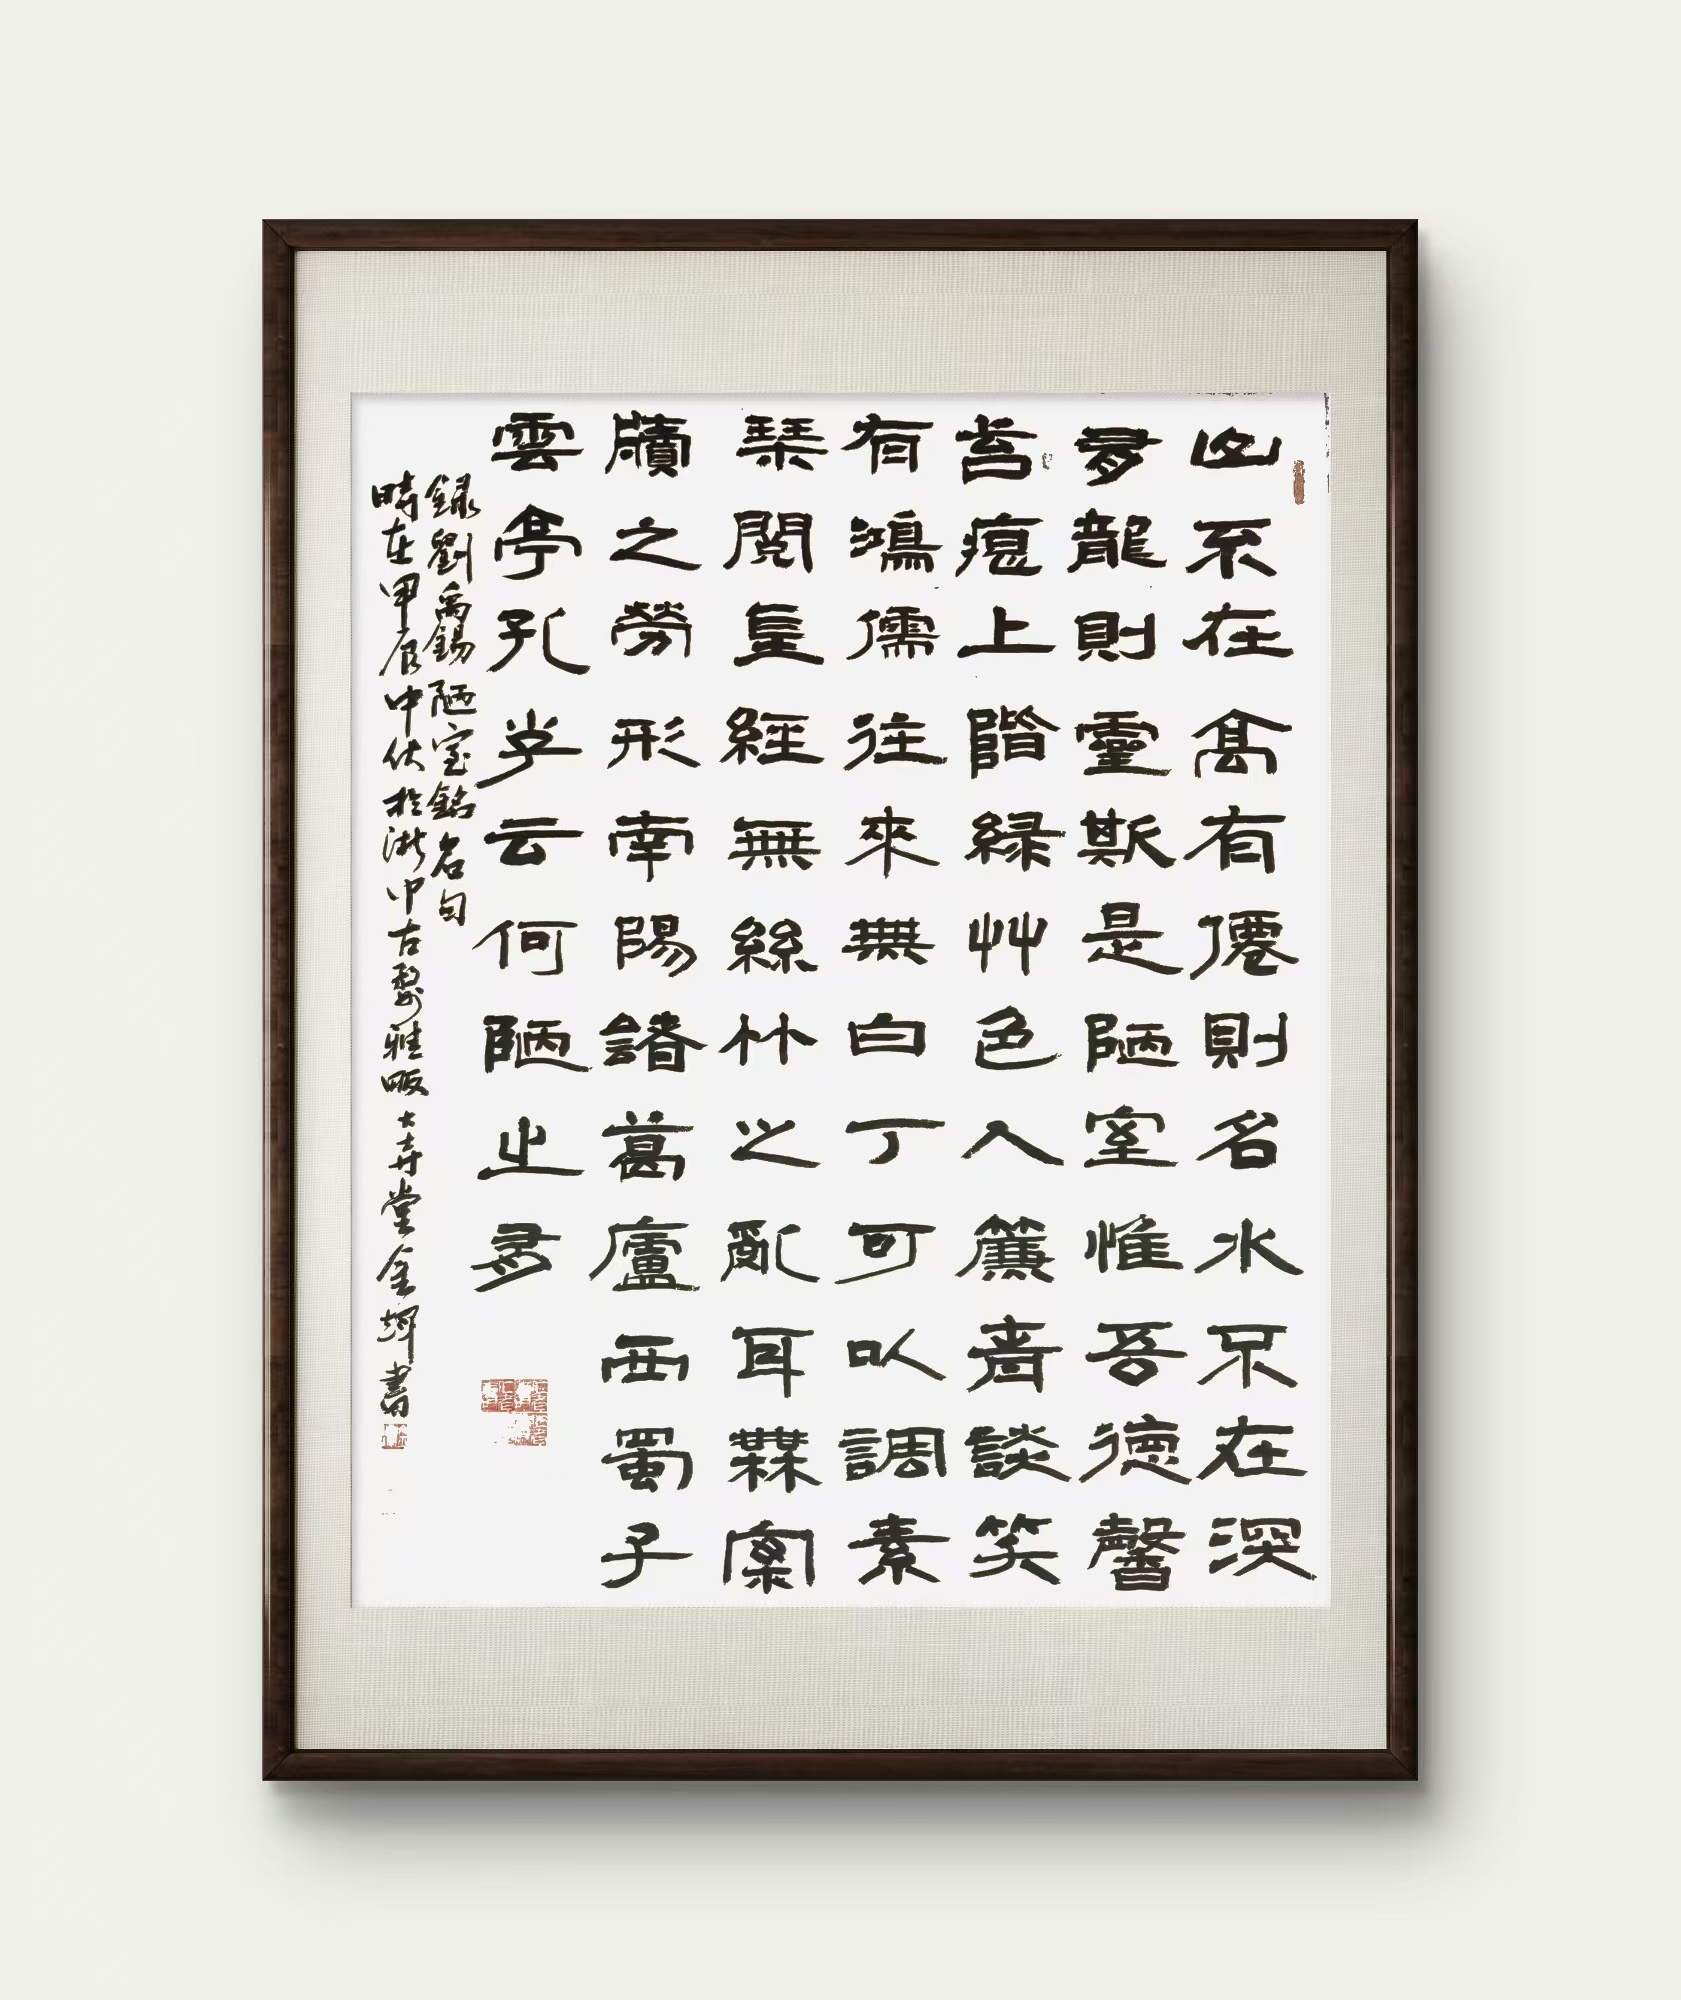 山不在高有僊則名水不在深
有龍則靈斯是陋室惟吾德馨
苔痕上階緑艸色入簾青談笑
有鴻儒往來無白丁可以調素
琴閱金經無絲竹之亂耳無案
牘之勞形南陽諸葛廬西蜀子
雲亭孔子云何陋之有
録劉禹錫陋室銘名句
時在甲辰中伏於浙中古婺雅畈大寿堂金輝書